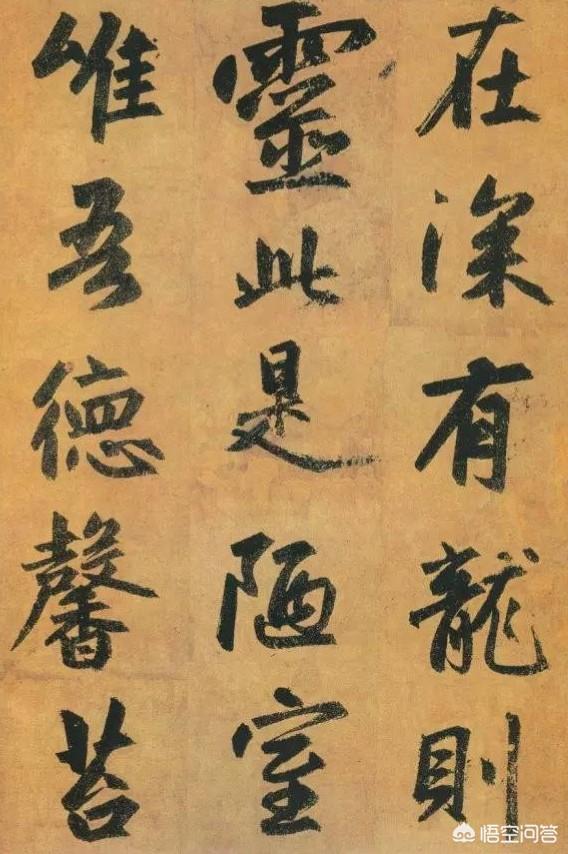 在深有龍則
靈此是陋室
唯吾德馨苔
悟空问答